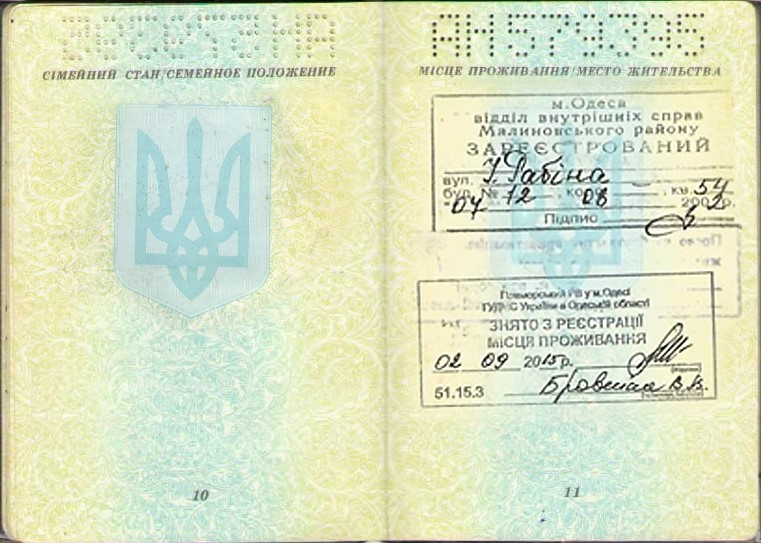 СІМЕЙНИЙ СТАН/СЕМЕЙНОЕ ПОЛОЖЕНИЕ
10
АН579395
МІСЦЕ ПРОЖИВАННЯ/МЕСТО ЖИТЕЛЬСТВА
м.Одеса
відділ внутрішніх справ
Малиновського району
ЗАРЕЄСТРОВАНИЙ
вул. І. Рабіна
буд. № 12, кв. 54
"04" 08 2002р.
Підпис
Приморський РВ у м.Одесі
ГУДМС України в Одеській області
ЗНЯТО З РЕЄСТРАЦІЇ
МІСЦЯ ПРОЖИВАННЯ
02 09 2015р.
51.15.3
11